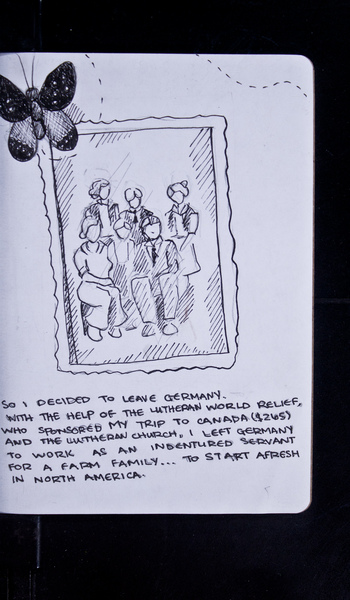 SO I DECIDED TO LEAVE GERMANY.
WITH THE HELP OF THE LUTHERAN WORLD RELIEF,
WHO SPONSORED MY TRIP TO CANADA ($265)
AND THE LUTHERAN CHURCH, I LEFT GERMANY
TO WORK AS AN INDENTURED SERVANT
FOR A FARM FAMILY... TO START AFRESH
IN NORTH AMERICA.